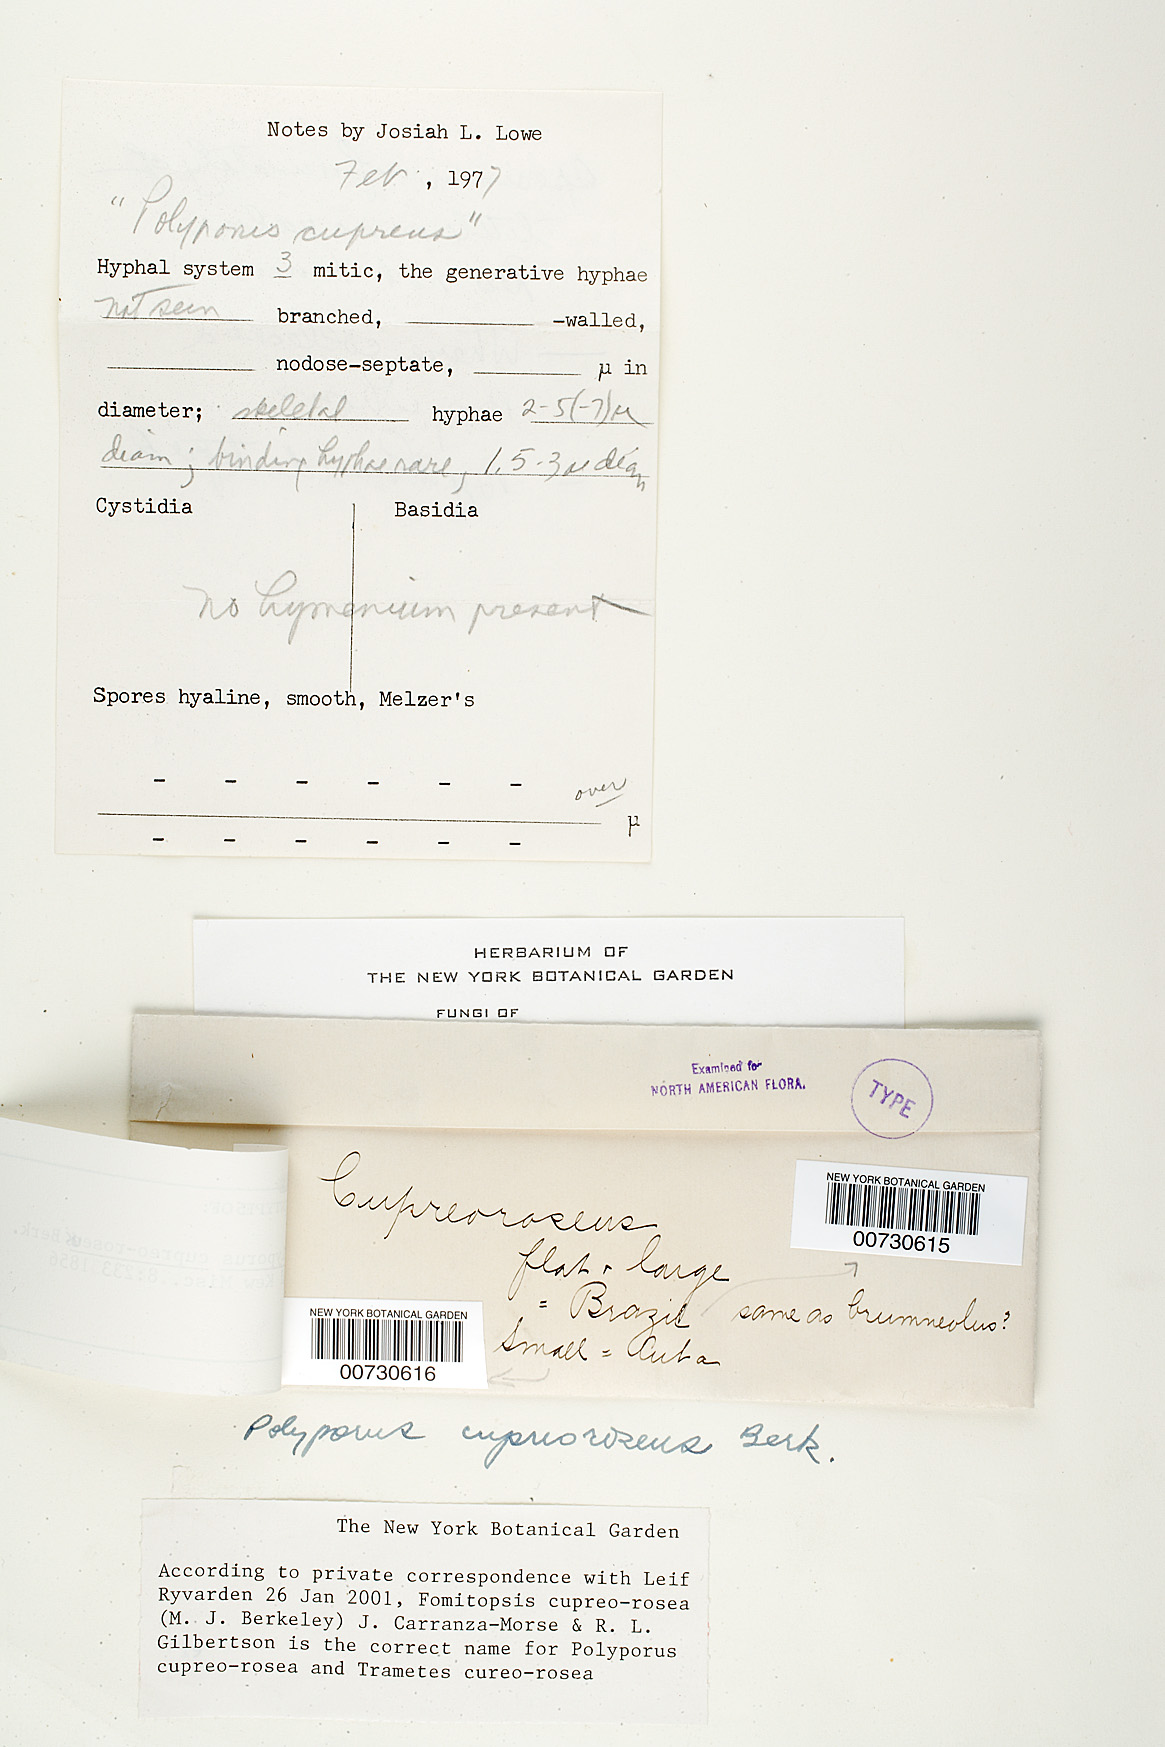 Notes by Josiah L. Lowe
Feb., 1977
"Polyporus cupreus"
Hyphal system 3 mitic, the generative hyphae
not seen branched, -walled,
nodose-septate, µ in
diameter; skeletal hyphae 2-5(-7)µ
diam; binding hyphae rare, 1.5-3µ diam
Cystidia Basidia
no hymenium present
Spores hyaline, smooth, Melzer's
- - - - - - over
µ
- - - - - -
HERBARIUM OF
THE NEW YORK BOTANICAL GARDEN
FUNGI OF
Examined for
NORTH AMERICAN FLORA.
TYPE
Cupreoroseus
flat + large
= Brazil same as brunneolus?
Small = Cuba
NEW YORK BOTANICAL GARDEN
00730615
NEW YORK BOTANICAL GARDEN
00730616
Polyporus cupreoroseus Berk.
The New York Botanical Garden
According to private correspondence with Leif
Ryvarden 26 Jan 2001, Fomitopsis cupreo-rosea
(M. J. Berkeley) J. Carranza-Morse & R. L.
Gilbertson is the correct name for Polyporus
cupreo-rosea and Trametes cureo-rosea